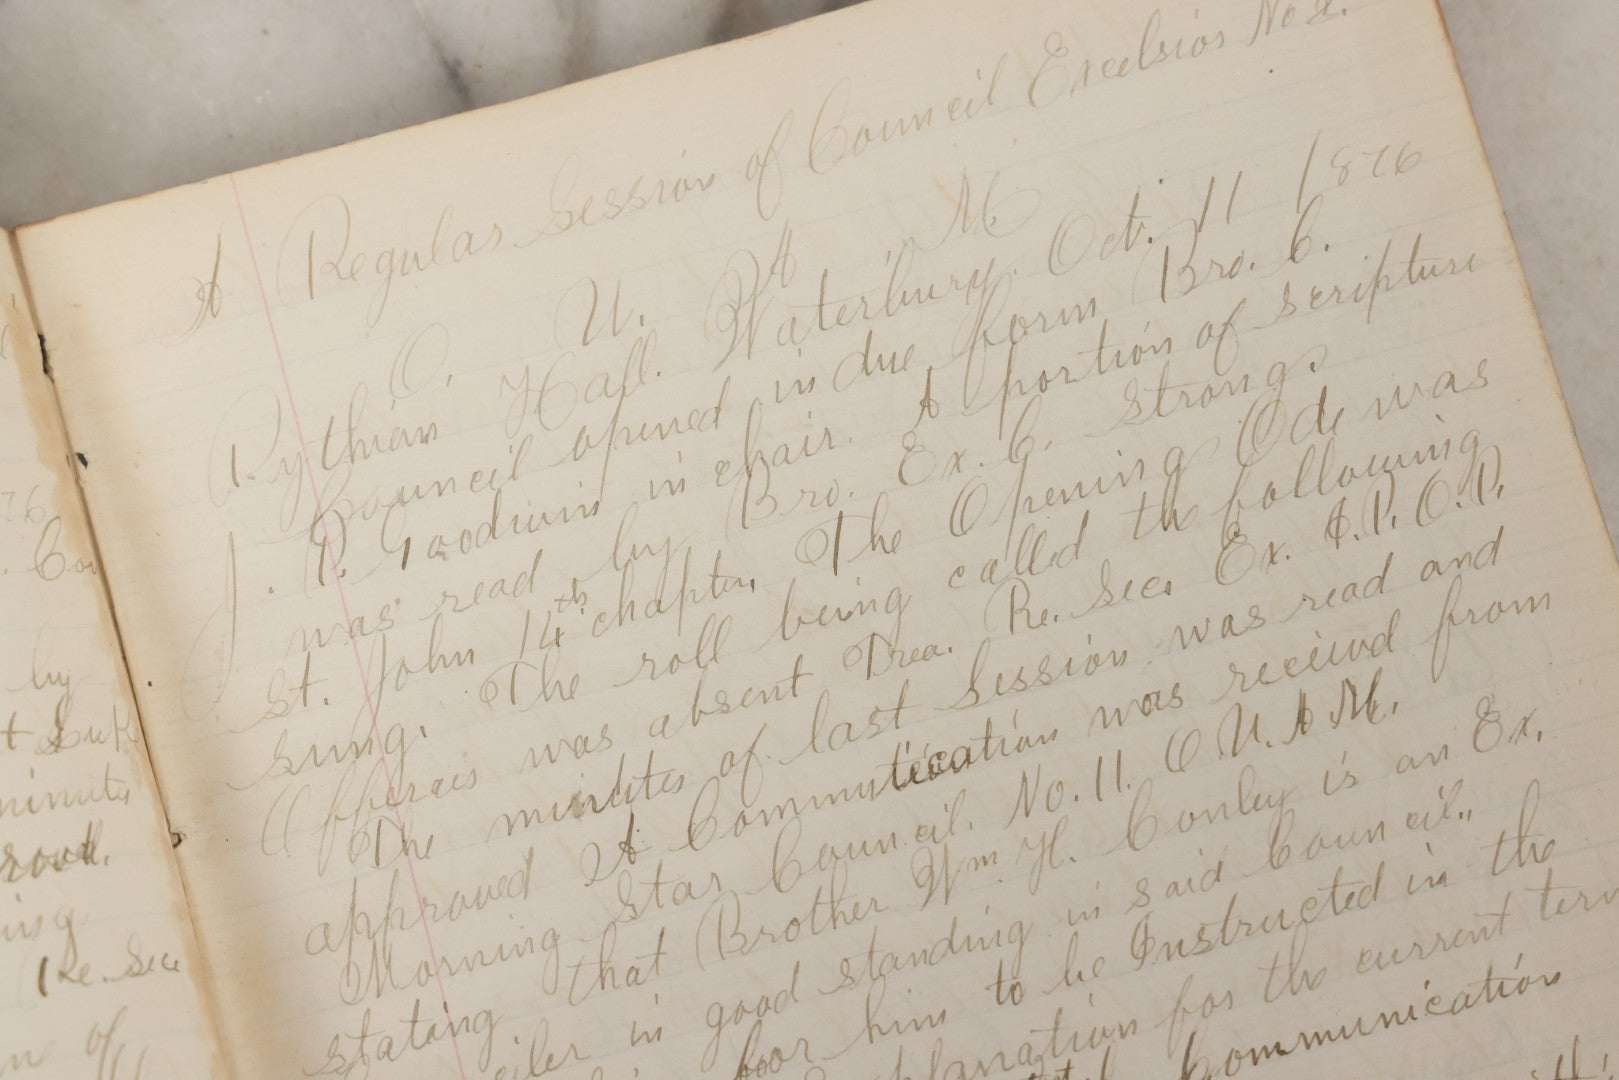 A Regular Session of Council Excelsior No 2.
O. U. A M
Pythian Hall. Waterbury. Oct. 11 1876
Council opened in due form Bro. C.
J. P. Goodwin in chair. A portion of scripture
was read by Bro. Ex. C. Strong.
St. John 14th chapter. The Opening Ode was
sung. The roll being called the following
Officers was absent Trea. Re. Sec. Ex. I.P. O.P.
The minutes of last Session was read and
approved A Communication was received from
Morning Star Council. No. 11. O U. A M.
stating that Brother Wm. H. Conley is an Ex.
in good standing in said Council.
for him to be Instructed in the
for the current term
Communication
76
Cou
by
t Luk
minutes
Re. Sec
of